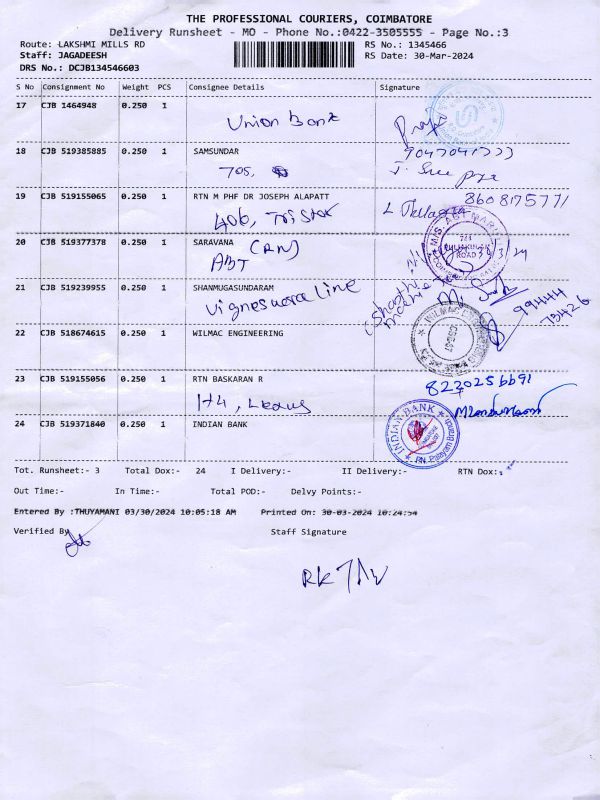 THE PROFESSIONAL COURIERS, COIMBATORE
Delivery Runsheet - MO - Phone No.:0422-3505555 - Page No.:3
Route: LAKSHMI MILLS RD
RS No.: 1345466
Staff: JAGADEESH
RS Date: 30-Mar-2024
DRS No.: DCJB134546603
S No Consignment No Weight PCS Consignee Details Signature
17 CJB 1464948 0.250 1
Union Bank
18 CJB 519385885 0.250 1 SAMSUNDAR
705,
19 CJB 519155065 0.250 1 RTN M PHF DR JOSEPH ALAPATT
8608175771
406, Tristar
20 CJB 519377378 0.250 1 SARAVANA (RN)
ABT
21 CJB 519239955 0.250 1 SHANMUGASUNDARAM
Vigneswara line
99444
73426
22 CJB 518674615 0.250 1 WILMAC ENGINEERING
23 CJB 519155056 0.250 1 RTN BASKARAN R
8220256691
24 CJB 519371840 0.250 1 INDIAN BANK
INDIAN BANK
Tot. Runsheet:- 3 Total Dox:- 24 I Delivery:- II Delivery:- RTN Dox:-
Out Time:- In Time:- Total POD:- Delvy Points:-
Entered By :THUYAMANI 03/30/2024 10:05:18 AM Printed On: 30-03-2024 10:24:54
Verified By
Staff Signature